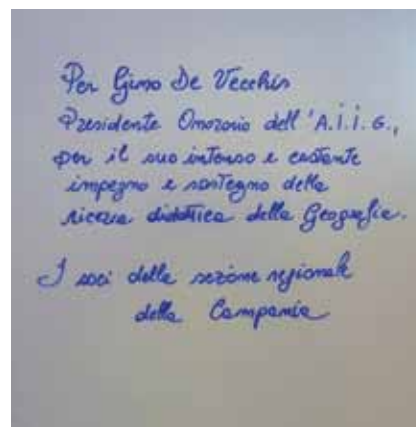 Per Gino De Vecchis
Presidente Onorario dell'A.I.I.G.,
per il suo intenso e costante
impegno e sostegno della
ricerca didattica della Geografia.
I soci della sezione regionale
della Campania